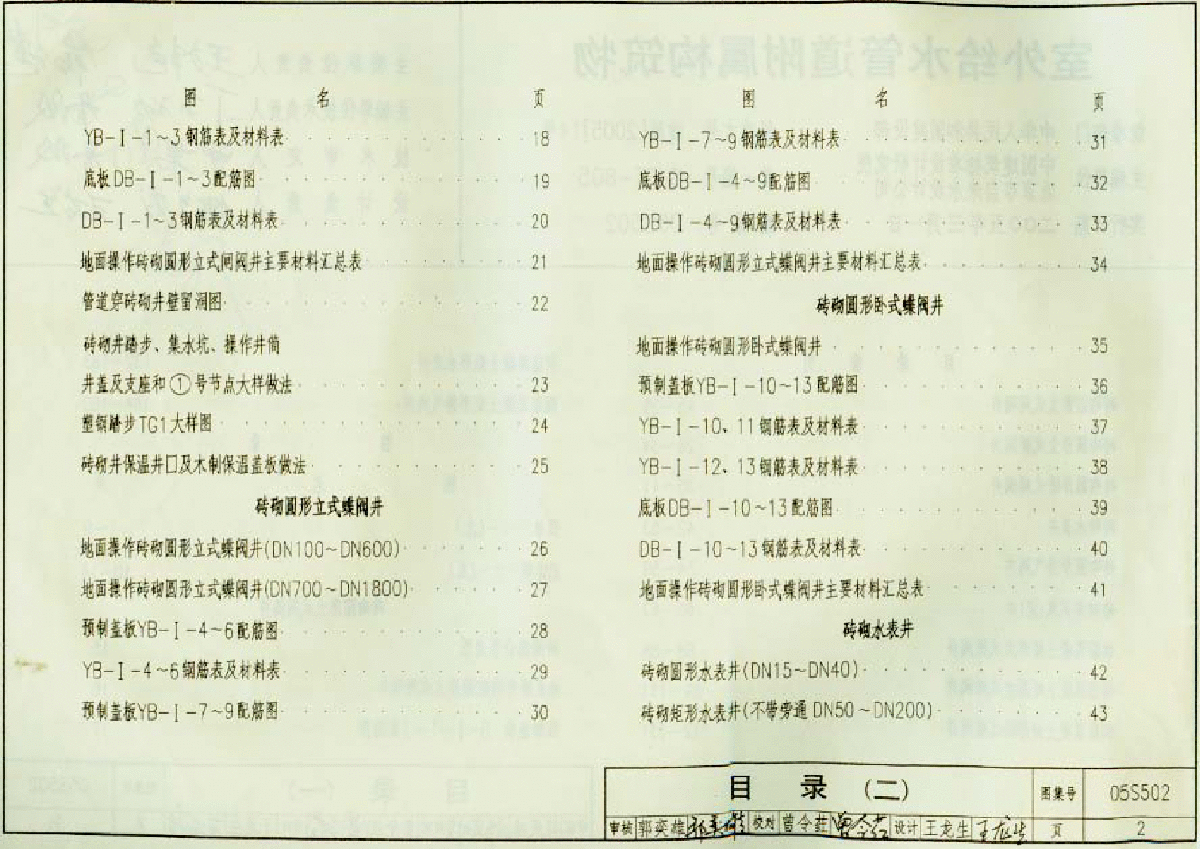 图 名 页
YB-Ⅰ-1~3钢筋表及材料表 18
底板DB-Ⅰ-1~3配筋图 19
DB-Ⅰ-1~3钢筋表及材料表 20
地面操作砖砌圆形立式闸阀井主要材料汇总表 21
管道穿砖砌井壁留洞图 22
砖砌井踏步、集水坑、操作井筒
井盖及支座和①号节点大样做法 23
塑钢踏步TG1大样图 24
砖砌井保温井口及木制保温盖板做法 25
砖砌圆形立式蝶阀井
地面操作砖砌圆形立式蝶阀井(DN100~DN600) 26
地面操作砖砌圆形立式蝶阀井(DN700~DN1800) 27
预制盖板YB-Ⅰ-4~6配筋图 28
YB-Ⅰ-4~6钢筋表及材料表 29
预制盖板YB-Ⅰ-7~9配筋图 30
图 名 页
YB-Ⅰ-7~9钢筋表及材料表 31
底板DB-Ⅰ-4~9配筋图 32
DB-Ⅰ-4~9钢筋表及材料表 33
地面操作砖砌圆形立式蝶阀井主要材料汇总表 34
砖砌圆形卧式蝶阀井
地面操作砖砌圆形卧式蝶阀井 35
预制盖板YB-Ⅰ-10~13配筋图 36
YB-Ⅰ-10、11钢筋表及材料表 37
YB-Ⅰ-12、13钢筋表及材料表 38
底板DB-Ⅰ-10~13配筋图 39
DB-Ⅰ-10~13钢筋表及材料表 40
地面操作砖砌圆形卧式蝶阀井主要材料汇总表 41
砖砌水表井
砖砌圆形水表井(DN15~DN40) 42
砖砌矩形水表井(不带旁通DN50~DN200) 43
目 录 (二) 图集号 05S502
审核 郭奕雄 校对 曾令菇 曾令菇 设计 王龙生 王龙生 页 2